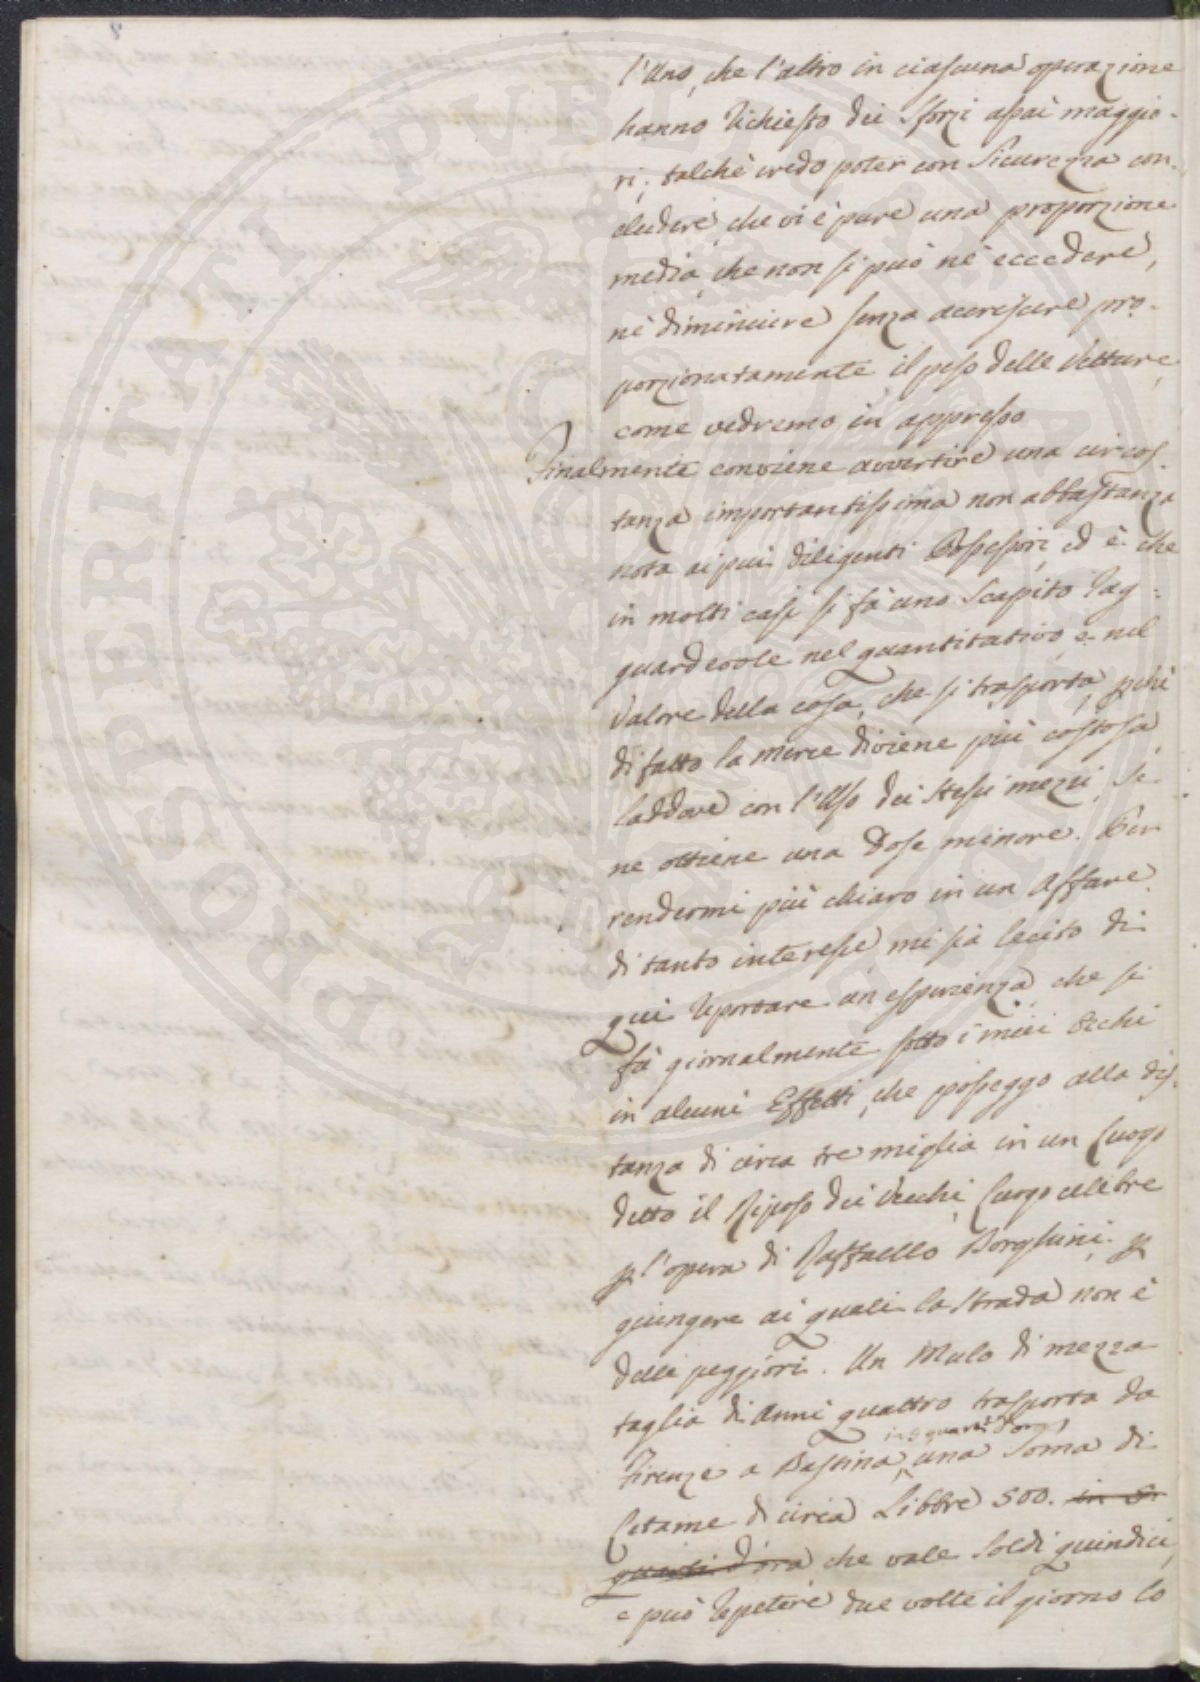 l'Uno, che l'altro in ciascuna operazione
hanno richiesto dei sforzi assai maggio-
ri; talchè credo poter con sicurezza con-
cludere, che vi è pure una proporzione
media, che non si può nè eccedere,
nè diminuire senza accrescere pro-
porzionatamente il peso delle Vetture,
come vedremo in appresso
Finalmente conviene avvertire una circos-
tanza importantissima non abbastanza
nota ai più diligenti Possessori, ed è che
in molti casi si fà uno Scapito rag-
guardevole nel quantitativo, e nel
Valore della cosa, che si trasporta, pchè
di fatto la merce diviene più costosa,
laddove con l'Uso dei stessi mezzi, se
ne ottiene una Dose minore. Per
rendermi più chiaro in un Affare
di tanto interesse, mi sia lecito di
quì reportare un esperienza, che si
fà giornalmente sotto i miei Occhi
in alcuni Effetti, che posseggo alla dis-
tanza di circa tre miglia in un Luogo
detto il Riposo dei Vecchi, Luogo celebre
p l'opera di Raffaello Borghini; p
giungere ai quali la strada non è
delle peggiori. Un Mulo di mezza
taglia di Anni quattro trasporta da
in 5 quarti d'ora
Firenze a Bastina, una Soma di
Letame di circa Libbre 500. in 5.
quarti d'ora che vale Soldi quindici,
e può repetere due volte il giorno lo
PROSPERITATI PUBLICAE